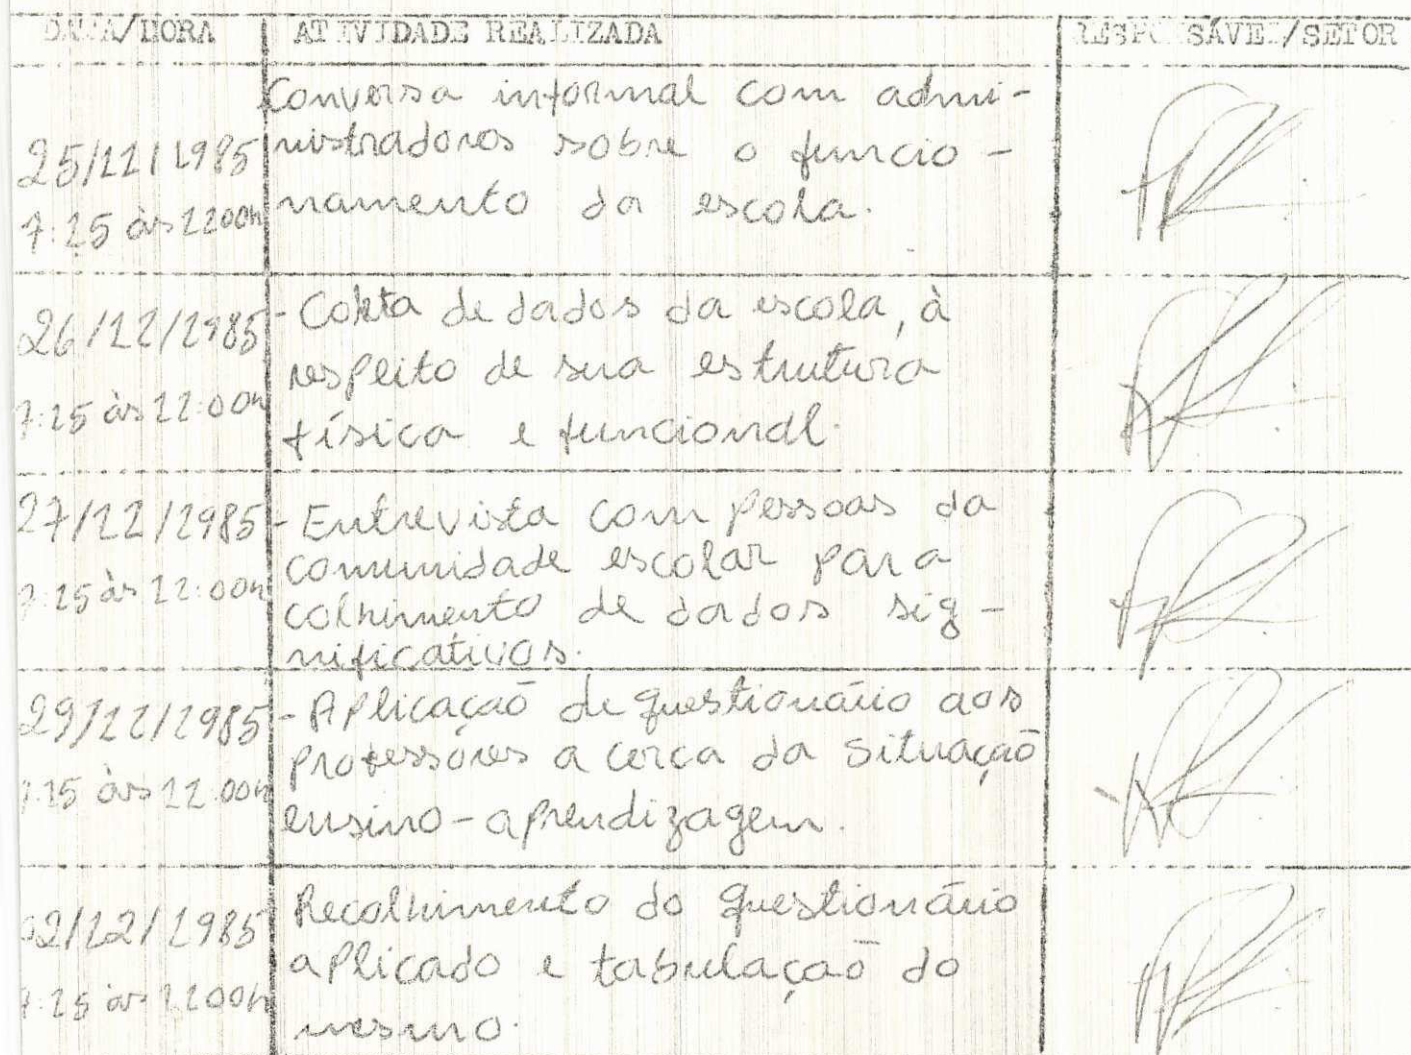 DATA/HORA ATIVIDADE REALIZADA RESPONSÁVEL/SETOR
25/11/1985
7:15 às 1100h
Conversa informal com admi-
nistradores sobre o funcio-
namento da escola.
26/11/1985
7:15 às 11:00h
- Coleta de dados da escola, à
respeito de sua estrutura
física e funcional.
27/11/1985
7:15 às 11:00h
- Entrevista com pessoas da
comunidade escolar para
colhimento de dados sig-
nificativos.
29/11/1985
7:15 às 11:00h
- Aplicação de questionário aos
professôres a cerca da situação
ensino-aprendizagem.
02/12/1985
7:15 às 1100h
Recolhimento do questionário
aplicado e tabulação do
mesmo.